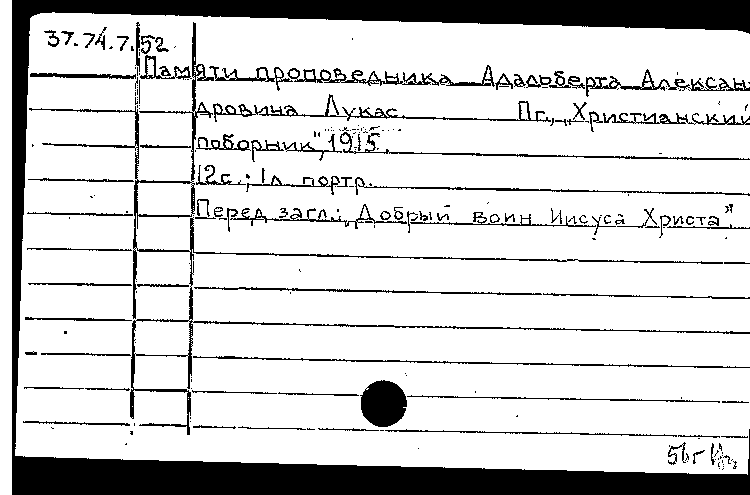 37.74.7.52
Памяти проповедника Адальберта Алексан-
дровича Лукас. Пг., „Христианский
поборник", 1915.
12с.; 1л портр.
Перед загл.: „Добрый воин Иисуса Христа".
56г